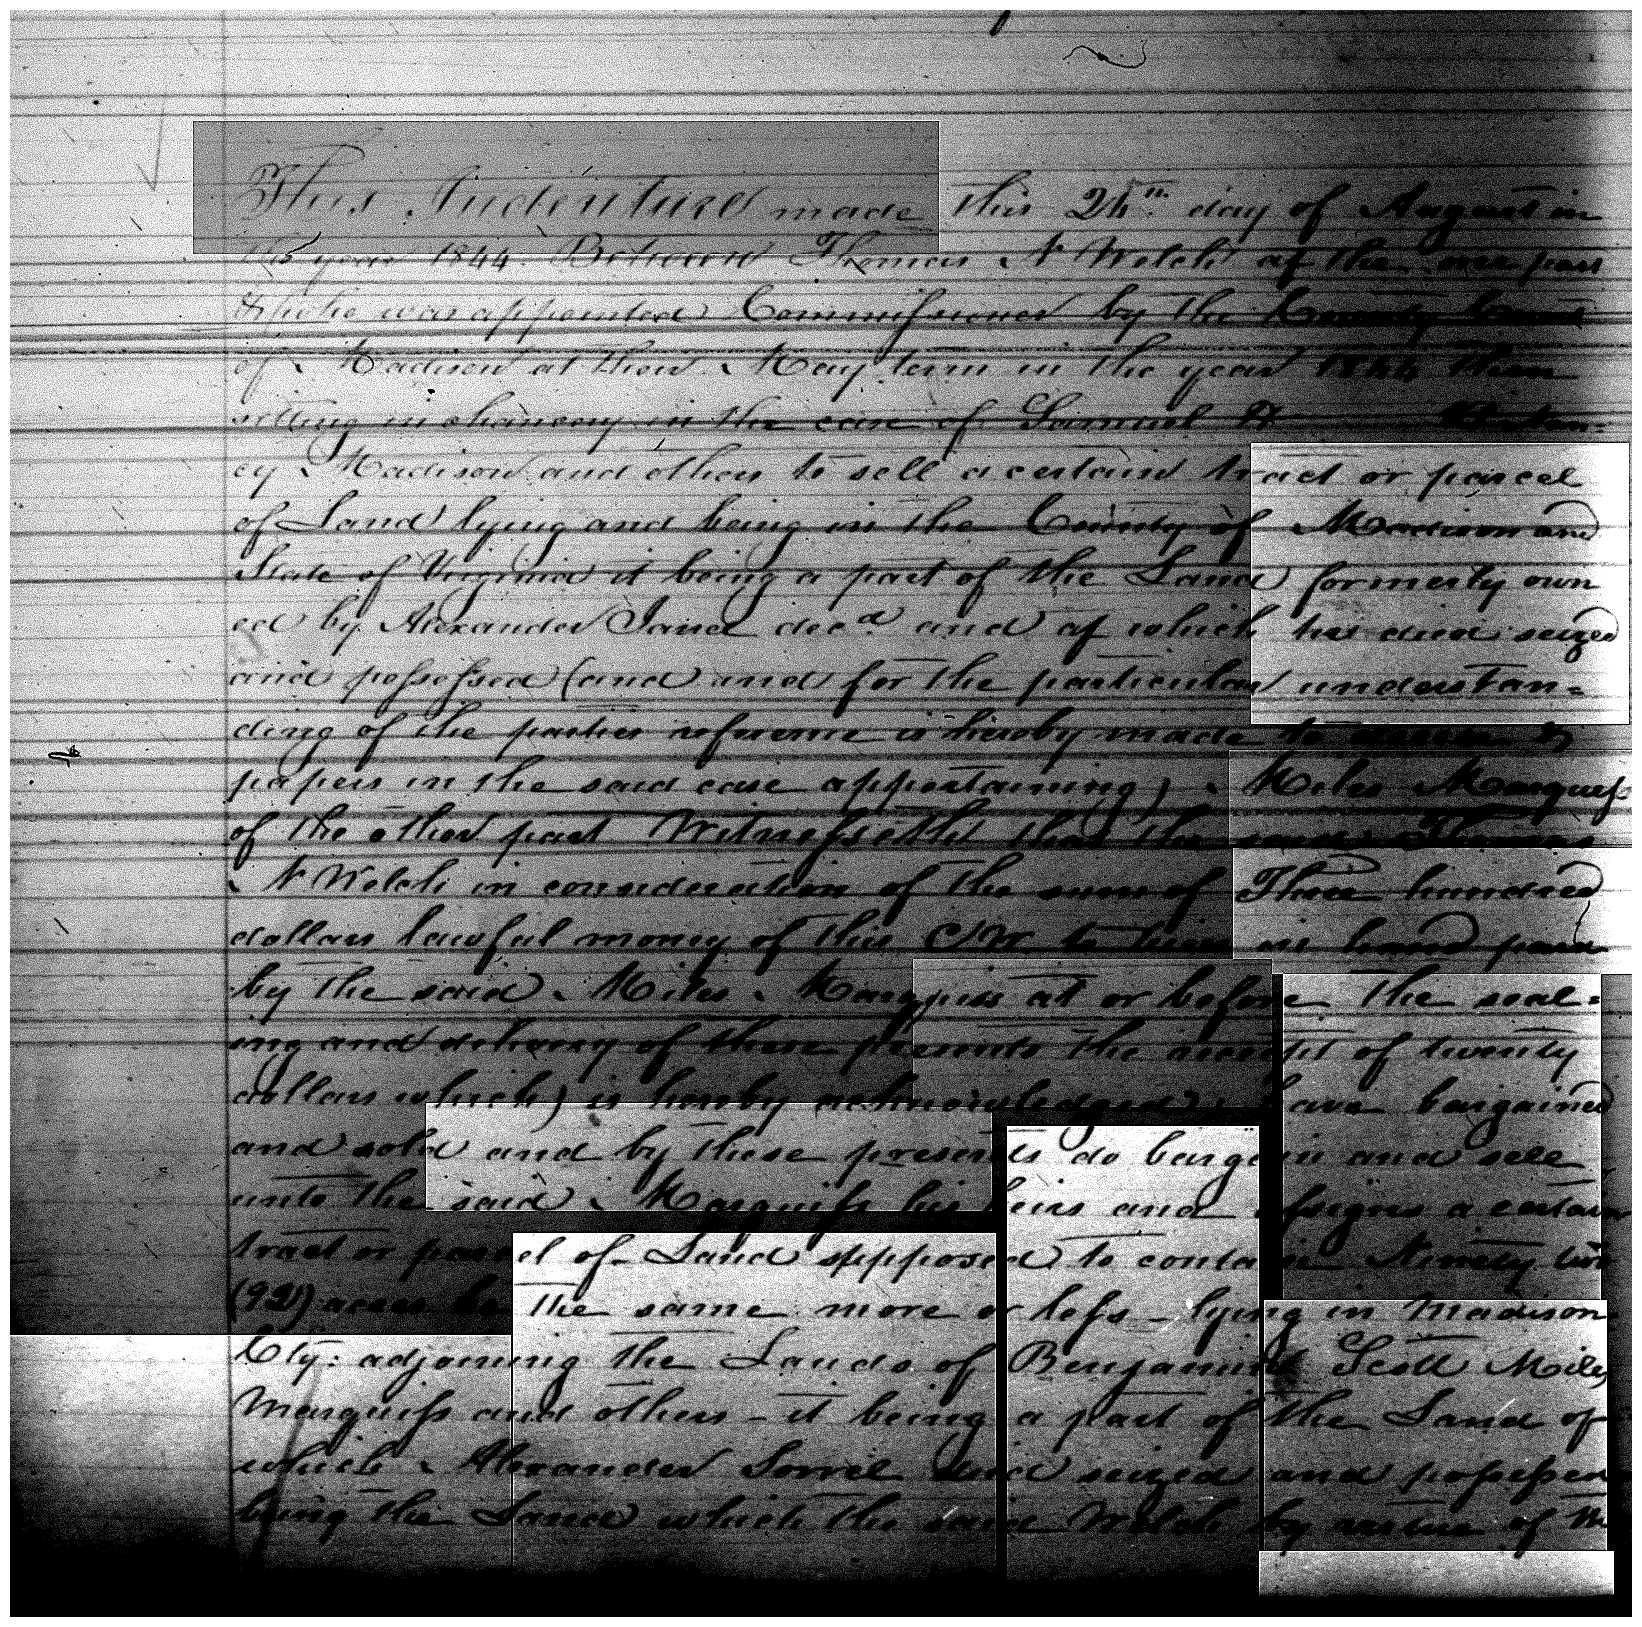 This Indenture made this 24th day of August in
the year 1844 Between Thomas N Welch of the one part
& who was appointed Commissioner by the County Court
of Madison at their May term in the year 1844 then
sitting in chancery in the case of Samuel
cy Madison and others to sell a certain tract or parcel
of Land lying and being in the County of Madison and
State of Virginia it being a part of the Land formerly own
ed by Alexander decd and of which he died seized
and possessed (and and for the particular understan=
ding of the parties reference is hereby made to
papers in the said case appertaining) Miles Marquess
of the other part Witnesseth that the said Thomas
N Welch in consideration of the sum of Three hundred
dollars lawful money of this CW to him in hand paid
by the said Miles Marquiss at or before the seal=
ing and delivery of these presents the receipt of twenty
dollars which) is hereby acknowledged, have bargained
and sold and by these presents do bargain and sell
unto the said Marquiss his heirs and assigns a certain
tract or parcel of Land spposed to contain Ninety two
(92) acres be the same more or less - lying in Madison
Cty: adjoining the Lands of Benjamin Scott Miles
Marquiss and others - it being a part of the Land of
which Alexander died seized and possessed
being the Land which the said Welch by virtue of the